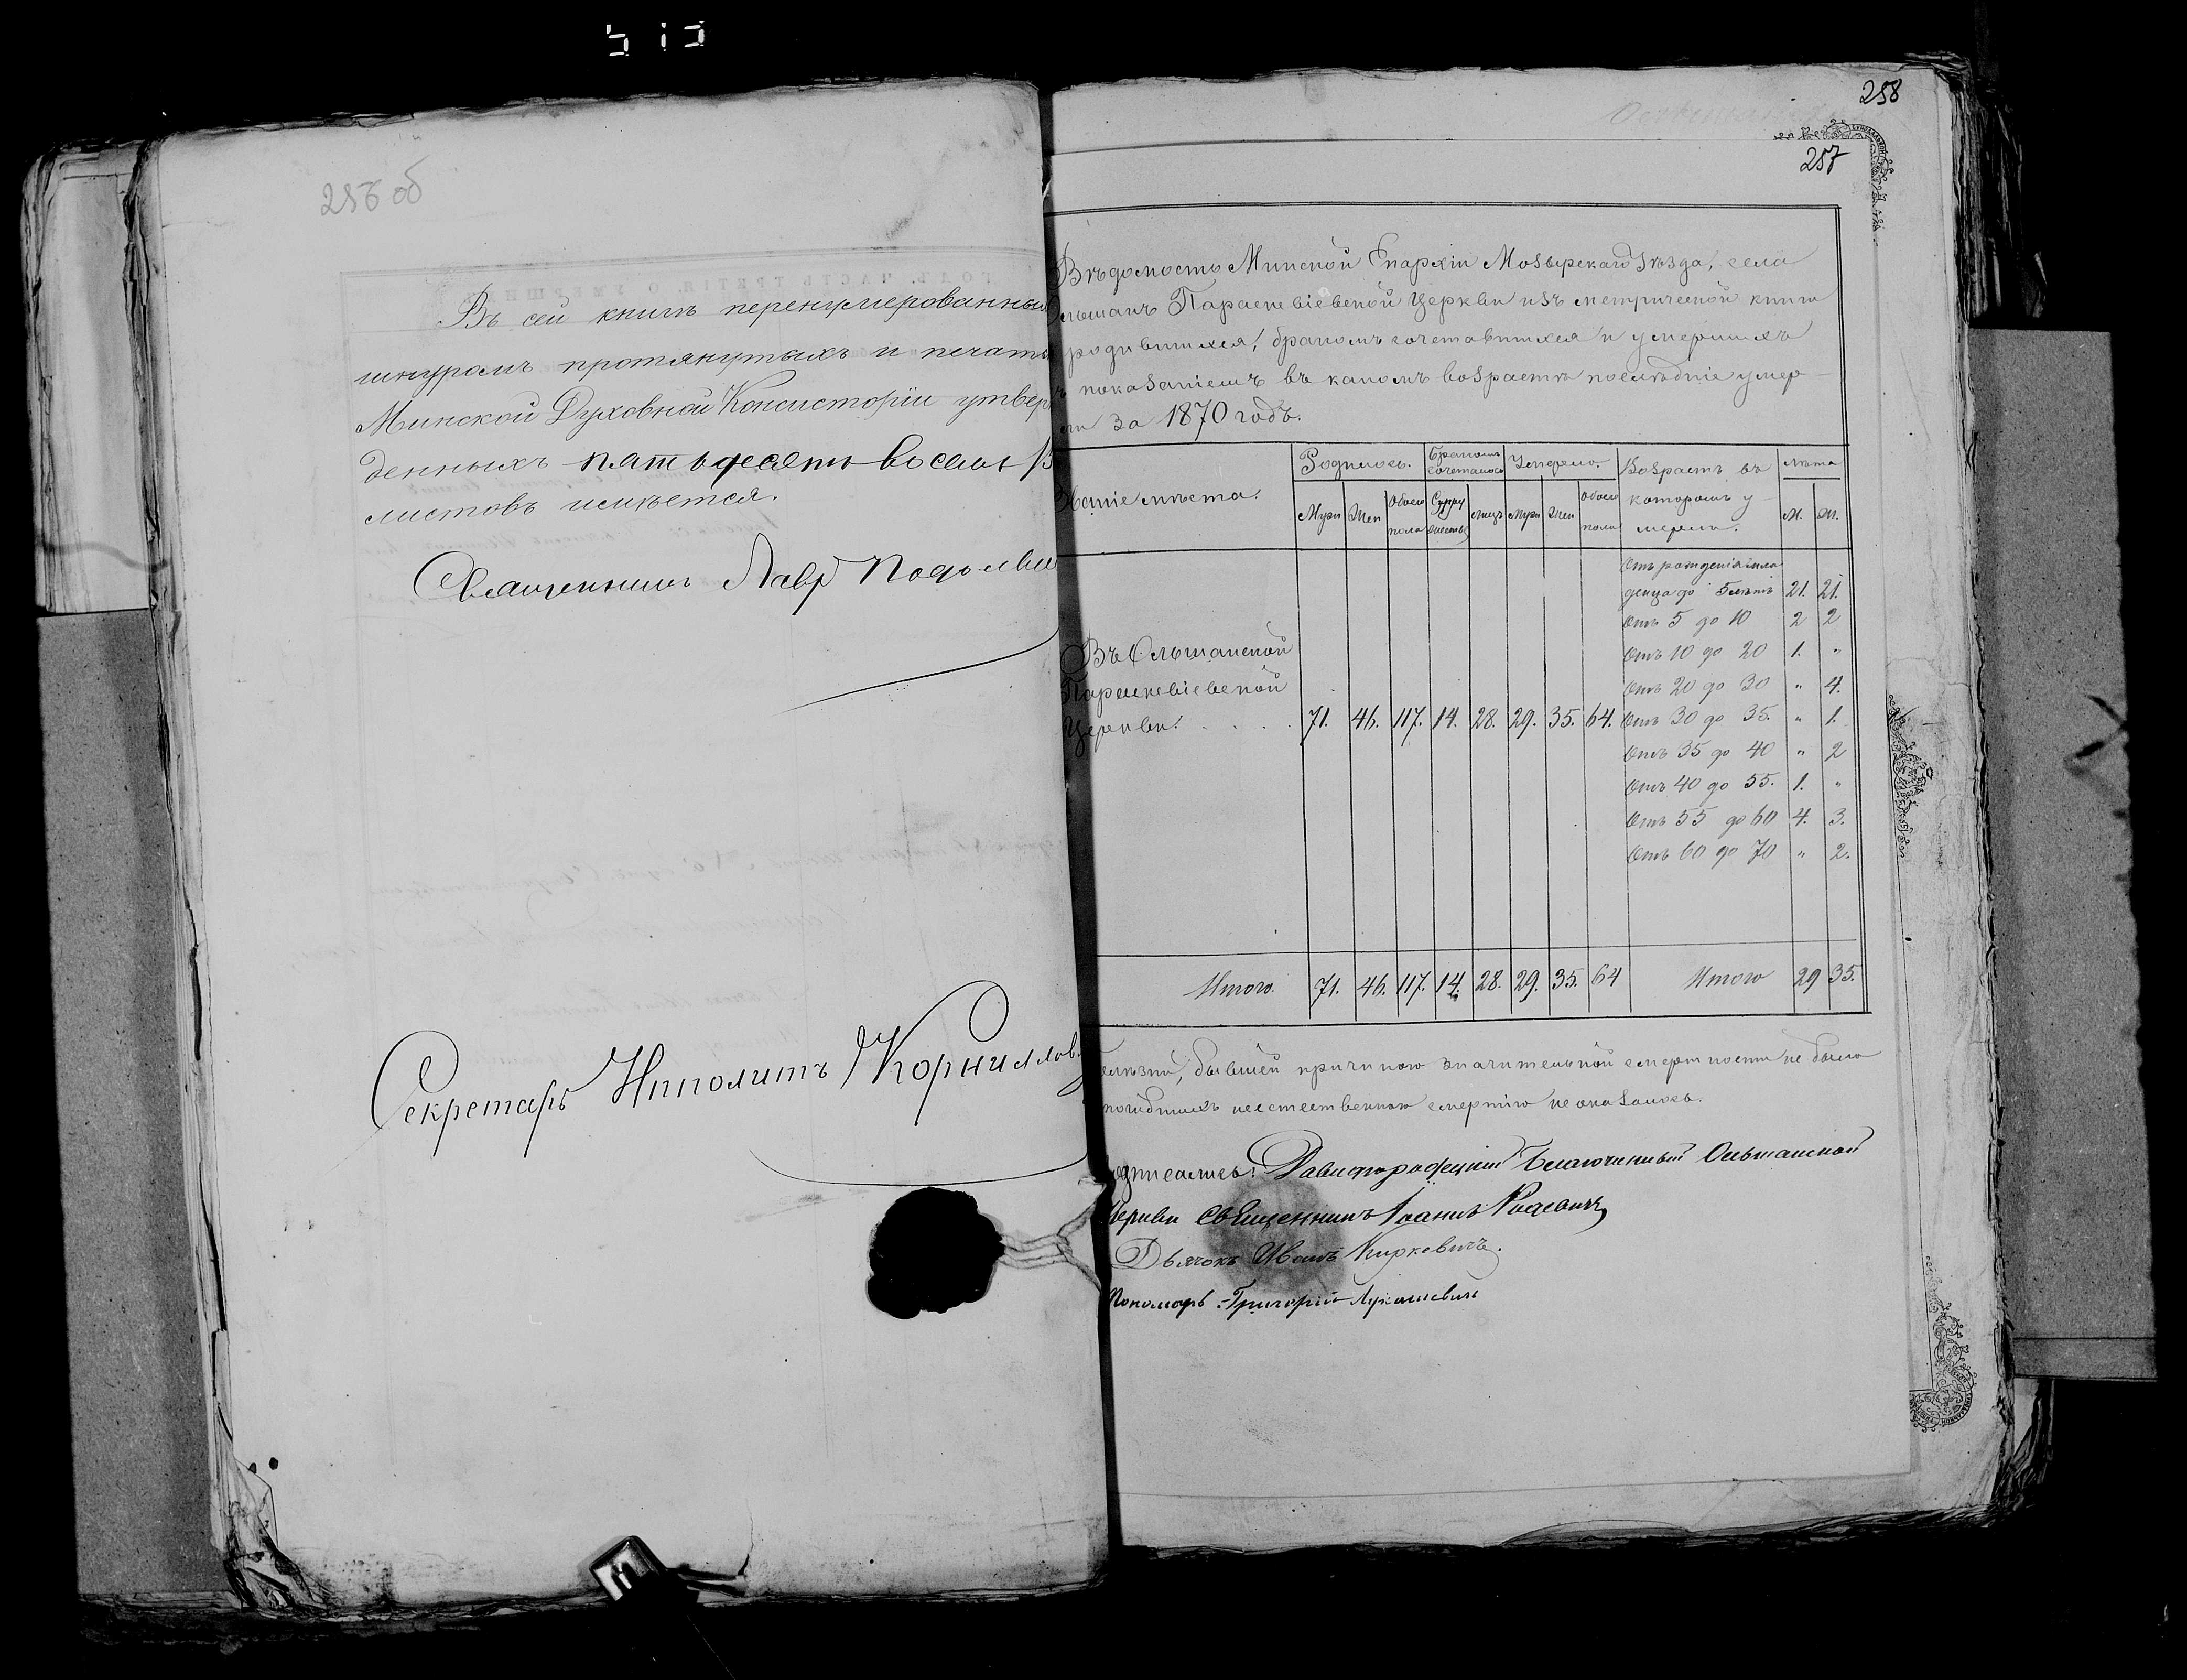 256 об
Въ сей книгѣ перенумерованныхъ
шнуромъ протянутыхъ и печатью
Минской Духовной Консисторіи утверж
денныхъ пятьдесятъ восемь
листовъ имѣется.
Священникъ Лавр
Секретарь Ипполитъ Корниллов
258
257
Вѣдомость Минской Епархіи Мозырскаго Уѣзда, села
льшанъ Параскевіевской Церкви изъ метрической книги
родившихся, бракомъ сочетавшихся и умершихъ
ъ показаніемъ въ какомъ возрастѣ послѣдніе умер-
ли за 1870 годъ.
Родилось. Бракомъ сочеталось Умерло. Возрастъ въ которомъ умерли. лѣта
званіе мѣста. Муж Жен Обоего пола Супружествъ лицъ Муж Жен Обоего пола М. Ж.
Отъ рожденія мла
денца до 5 лѣтъ 21. 21.
Отъ 5 до 10 2 2
Въ Ольшанской Отъ 10 до 20 1. "
Параскевіевской Отъ 20 до 30 " 4.
Церкви. 71. 46. 117. 14. 28. 29. 35. 64. Отъ 30 до 35. " 1.
Отъ 35 до 40 " 2
Отъ 40 до 55. 1. "
Отъ 55 до 60 4. 3.
Отъ 60 до 70 " 2.
Итого 71. 46. 117. 14. 28. 29. 35. 64 Итого 29 35.
олѣзни, бывшей причиною значительной смертности не было
погибшихъ неестественною смертію не оказалось.
одписались: Давидгородецкій Благочинный Ольшанской
Церкви Священникъ Іоаннъ
Дьячокъ Иванъ Киркевичъ.
Пономарь Григорій Лукашевич